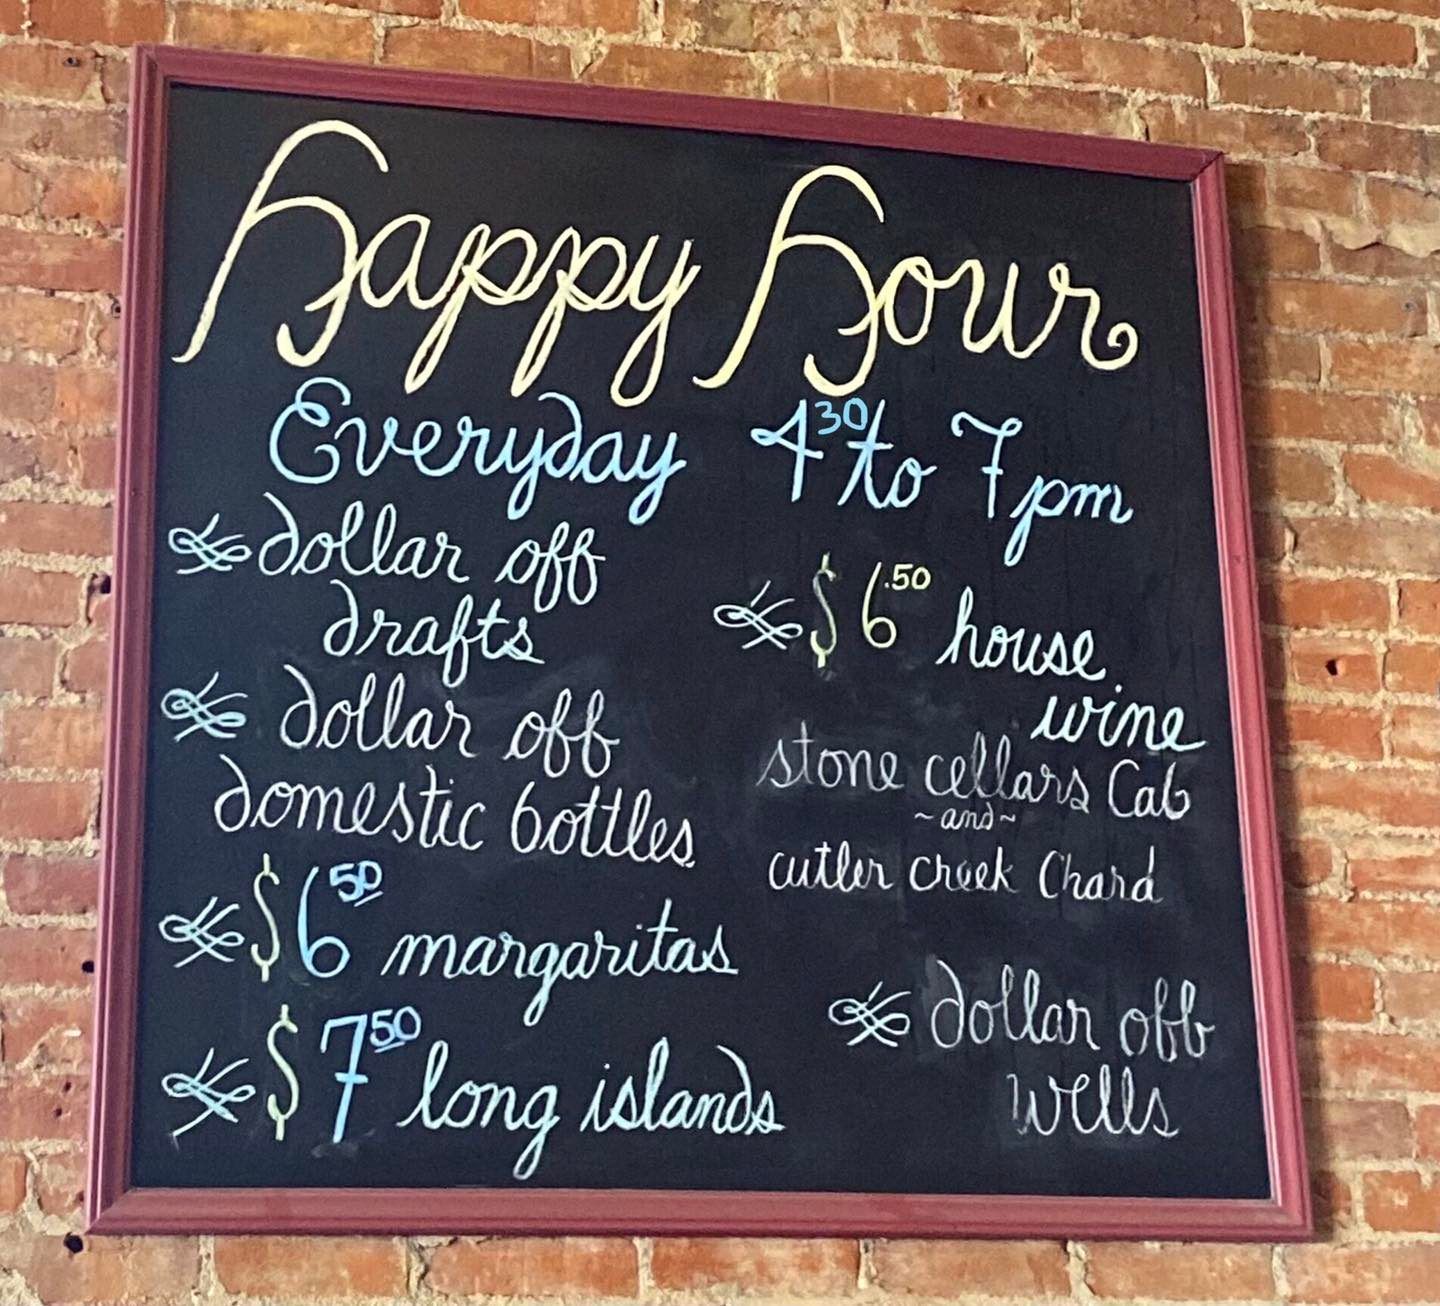 Happy Hour
Everyday 4³⁰ to 7pm
dollar off
drafts
dollar off
domestic bottles
$6⁵⁰ margaritas
$7⁵⁰ long islands
$6.⁵⁰ house
wine
stone cellars Cab
~and~
cutler creek Chard
dollar off
wells